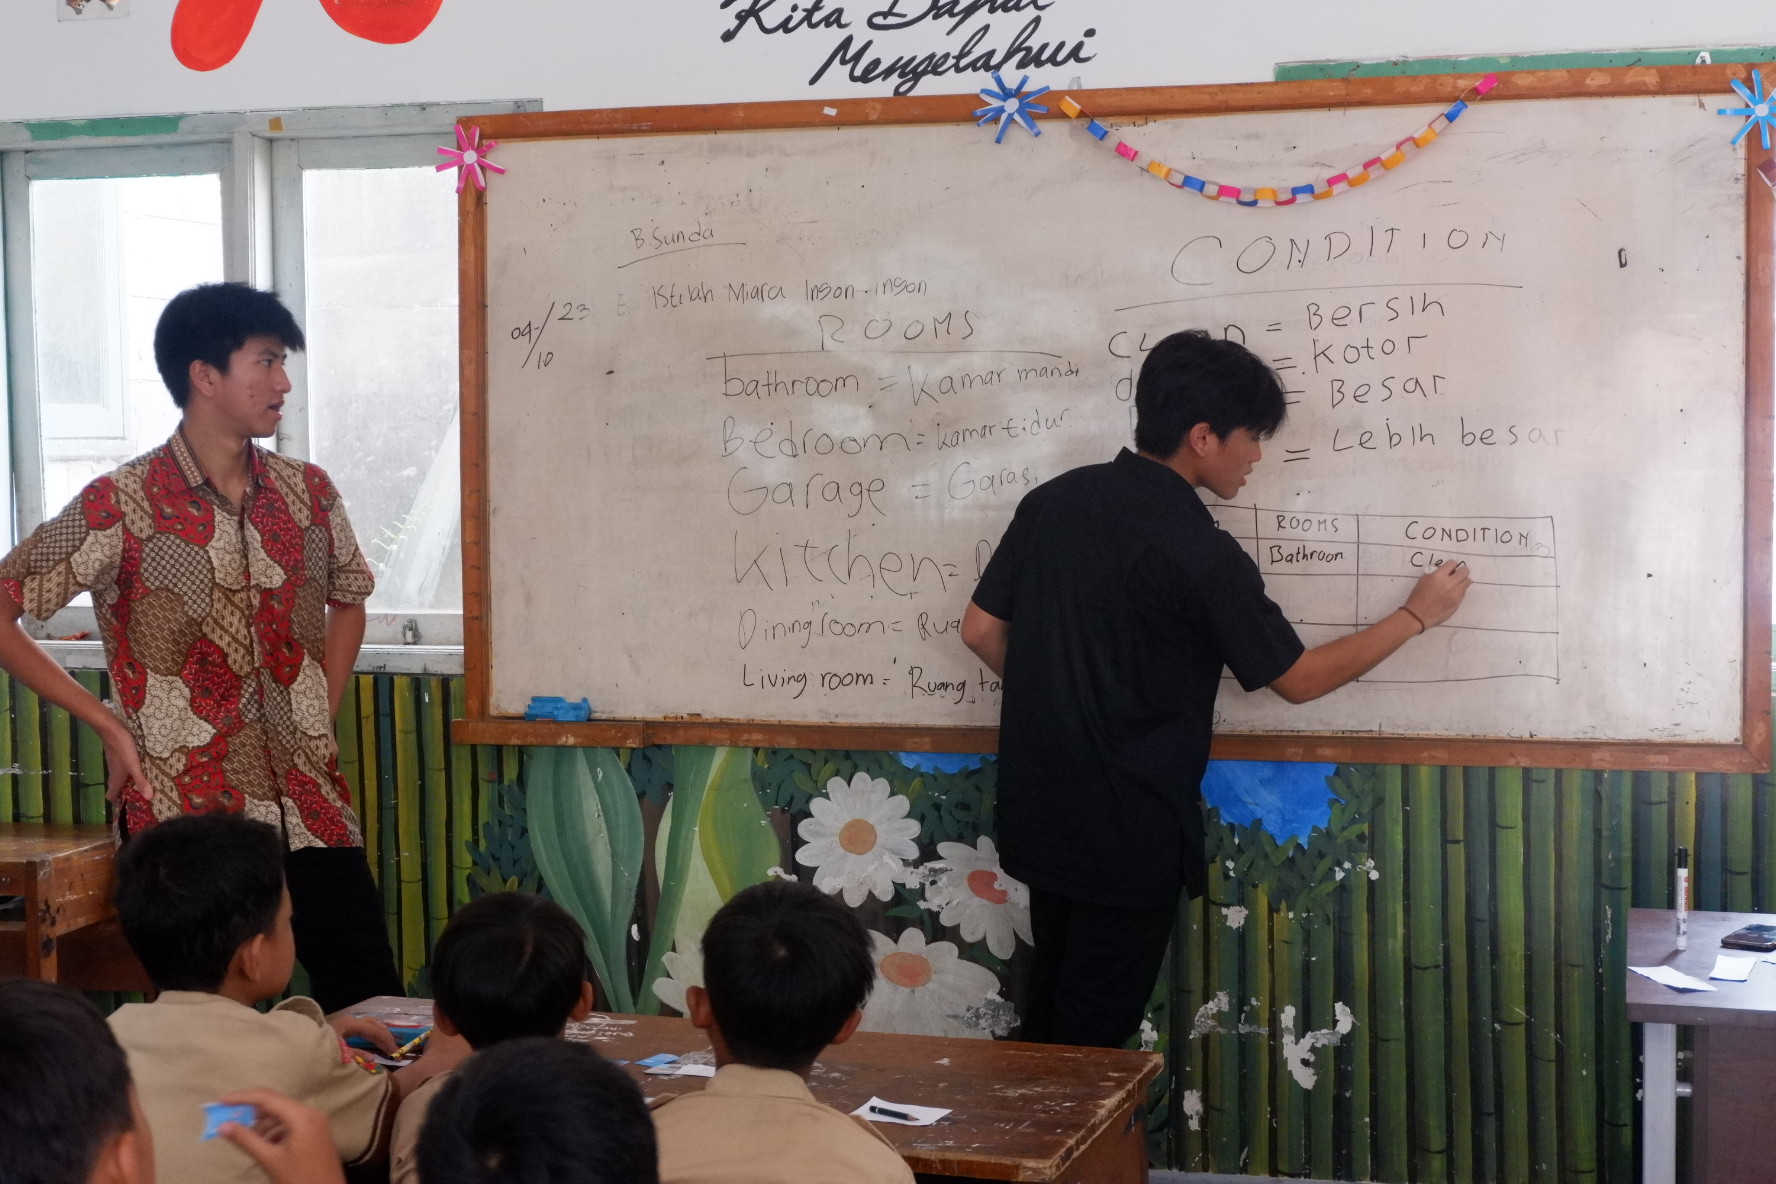 Kita Dapat
Mengetahui
B. Sunda
04/10/23
Istilah Miara Ingon-ingon
ROOMS
bathroom = Kamar mandi
Bedroom = kamar tidur
Garage = Garasi
Kitchen =
Dining room =
Living room = Ruang
CONDITION
= Bersih
= Kotor
= Besar
= Lebih besar
ROOMS CONDITION
Bathroom